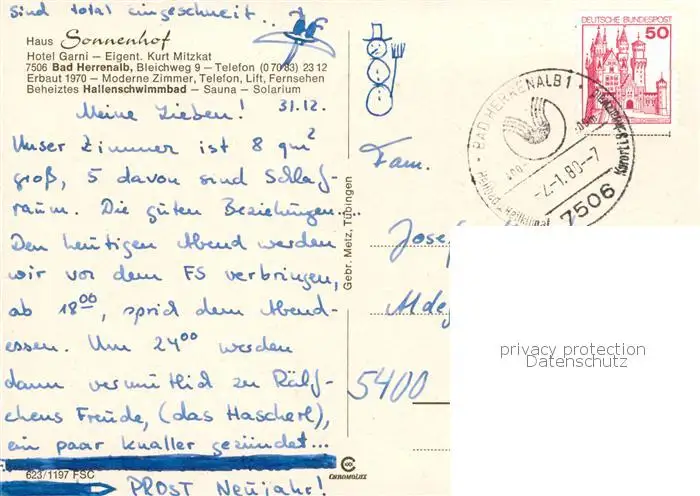 sind total eingeschneit..
Haus Sonnenhof
Hotel Garni – Eigent. Kurt Mitzkat
7506 Bad Herrenalb, Bleichweg 9 – Telefon (0 70 83) 23 12
Erbaut 1970 – Moderne Zimmer, Telefon, Lift, Fernsehen
Beheiztes Hallenschwimmbad – Sauna – Solarium
31.12.
Meine Lieben!
Unser Zimmer ist 8 qm²
groß, 5 davon sind Schlaf-
raum. Die guten Beziehungen...
Den heutigen Abend werden
wir vor dem FS verbringen,
ab 18⁰⁰, sprich dem Abend-
essen. Um 24⁰⁰ werden
dann vermutlich zu Rälf-
chens Freude, (das Hascherl),
ein paar Knaller gezündet...
PROST Neujahr!
623/1197 FSC
CHROMOLUX
Gebr. Metz, Tübingen
DEUTSCHE BUNDESPOST
50
BAD HERRENALB 1
-2.-1.80-7
7506
Fam.
Josef
Aldeg
5400
privacy protection
Datenschutz